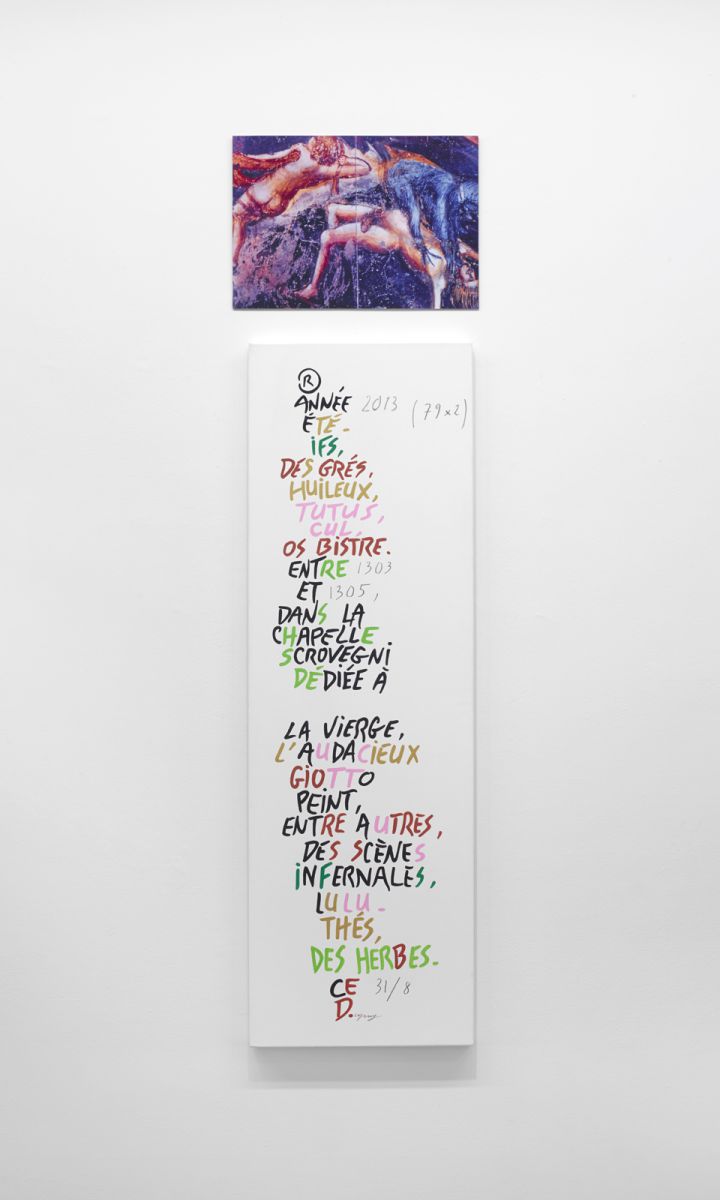 ®
ANNÉE 2013 (79x2)
ÉTÉ-
iFS,
DES GRÉS,
HUILEUX,
TUTUS,
CUL,
OS BISTRE.
ENTRE 1303
ET 1305,
DANS LA
CHAPELLE
SCROVEGNI
DÉDIÉE À
LA ViERGE,
L'AUDACiEUX
GiOTTO
PEiNT,
ENTRE AUTRES,
DES SCÈNES
iNFERNALES,
LULU-
THÉS,
DES HERBES-
CE 31/8
D.